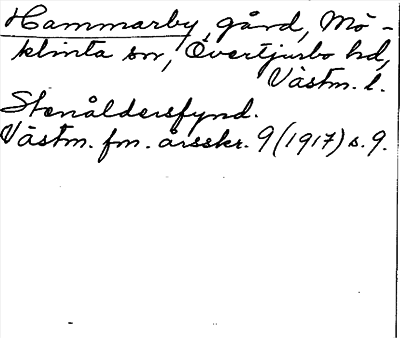 Hammarby gård, Mö-
klinta sn, Övertjurbo hd,
Västm. l.
Stenåldersfynd.
Västm. fm. årsskr. 9 (1917) s. 9.